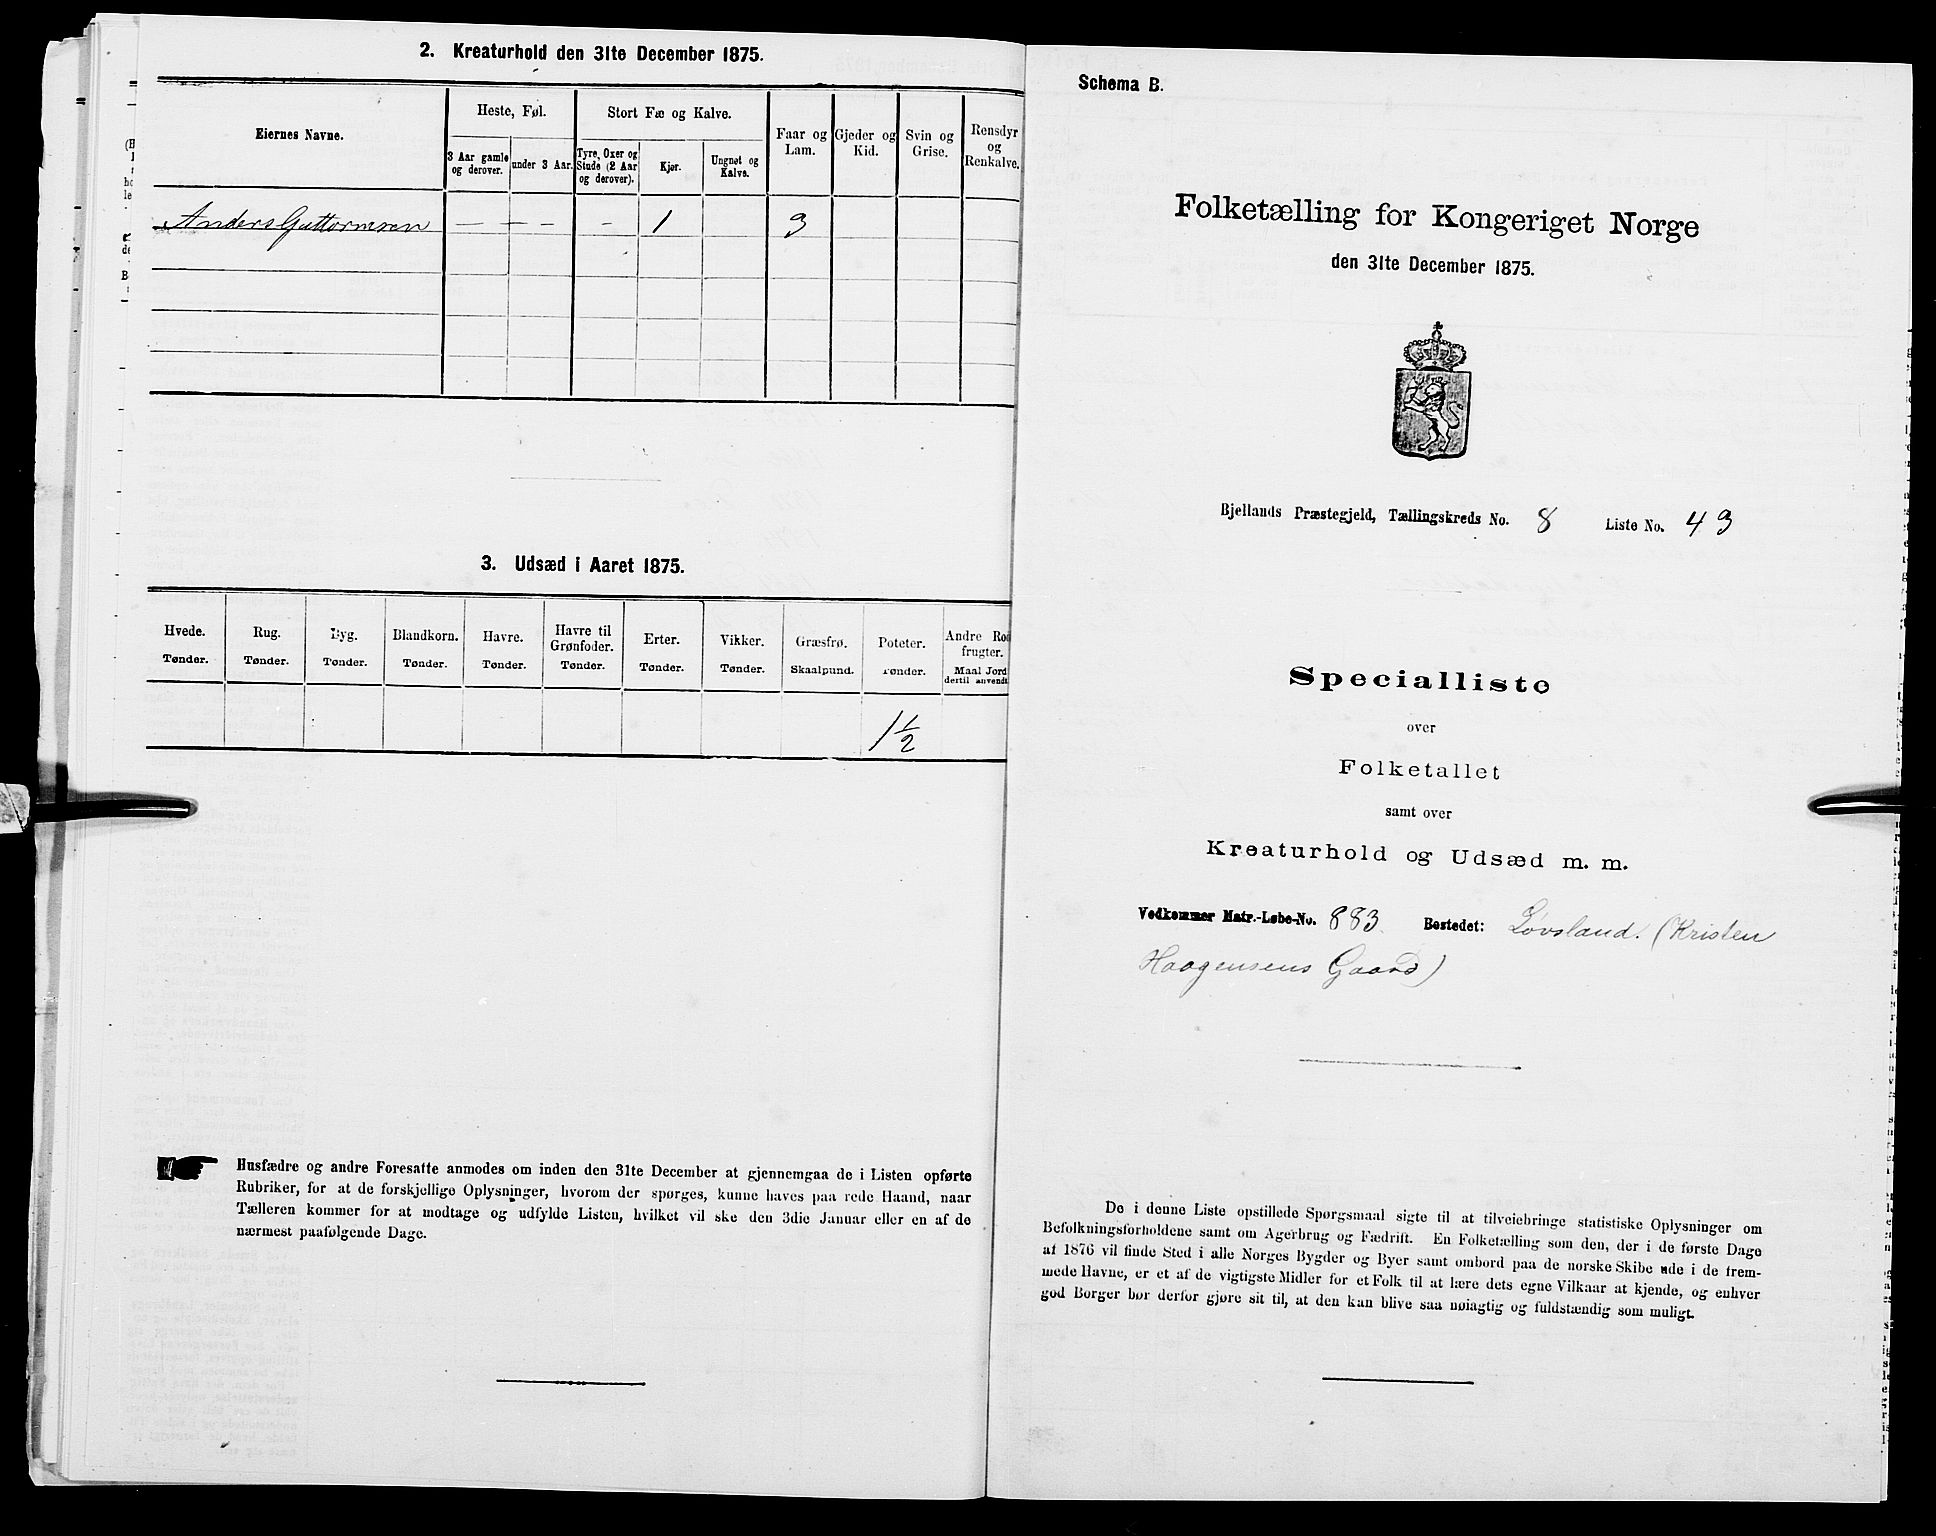 2. Kreaturhold den 31te December 1875.
Eiernes Navne.
Heste, Føl.
Stort Fæ og Kalve.
Faar og Lam.
Gjeder og Kid.
Svin og Grise.
Rensdyr og Renkalve.
3 Aar gamle og derover.
under 3 Aar.
Tyre, Oxer og Stude (2 Aar og derover).
Kjør.
Ungnøt og Kalve.
Anders Guttormsen — — — — 1 3
3. Udsæd i Aaret 1875.
Hvede. Rug. Byg. Blandkorn. Havre. Havre til Grønfoder. Erter. Vikker. Græsfrø. Poteter. Andre Rodfrugter.
Tønder. Tønder. Tønder. Tønder. Tønder. Tønder. Tønder. Tønder. Skaalpund. Tønder. Maal Jord dertil anvendt.
1 1/2
Husfædre og andre Foresatte anmodes om inden den 31te December at gjennemgaa de i Listen opførte
Rubriker, for at de forskjellige Oplysninger, hvorom der spørges, kunne haves paa rede Haand, naar
Tælleren kommer for at modtage og udfylde Listen, hvilket vil ske den 3die Januar eller en af de
nærmest paafølgende Dage.
Schema B.
Folketælling for Kongeriget Norge
den 31te December 1875.
Bjellands Præstegjeld, Tællingskreds No. 8 Liste No. 43
Specialliste
over
Folketallet
samt over
Kreaturhold og Udsæd m. m.
Vedkommer Matr.-Løbe-No. 883. Bostedet: Løvsland. (Kristen
Haagensens Gaard)
De i denne Liste opstillede Spørgsmaal sigte til at tilveiebringe statistiske Oplysninger om
Befolkningsforholdene samt om Agerbrug og Fædrift. En Folketælling som den, der i de første Dage
af 1876 vil finde Sted i alle Norges Bygder og Byer samt ombord paa de norske Skibe ude i de frem-
mede Havne, er et af de vigtigste Midler for et Folk til at lære dets egne Vilkaar at kjende, og enhver
god Borger bør derfor gjøre sit til, at den kan blive saa nøiagtig og fuldstændig som muligt.